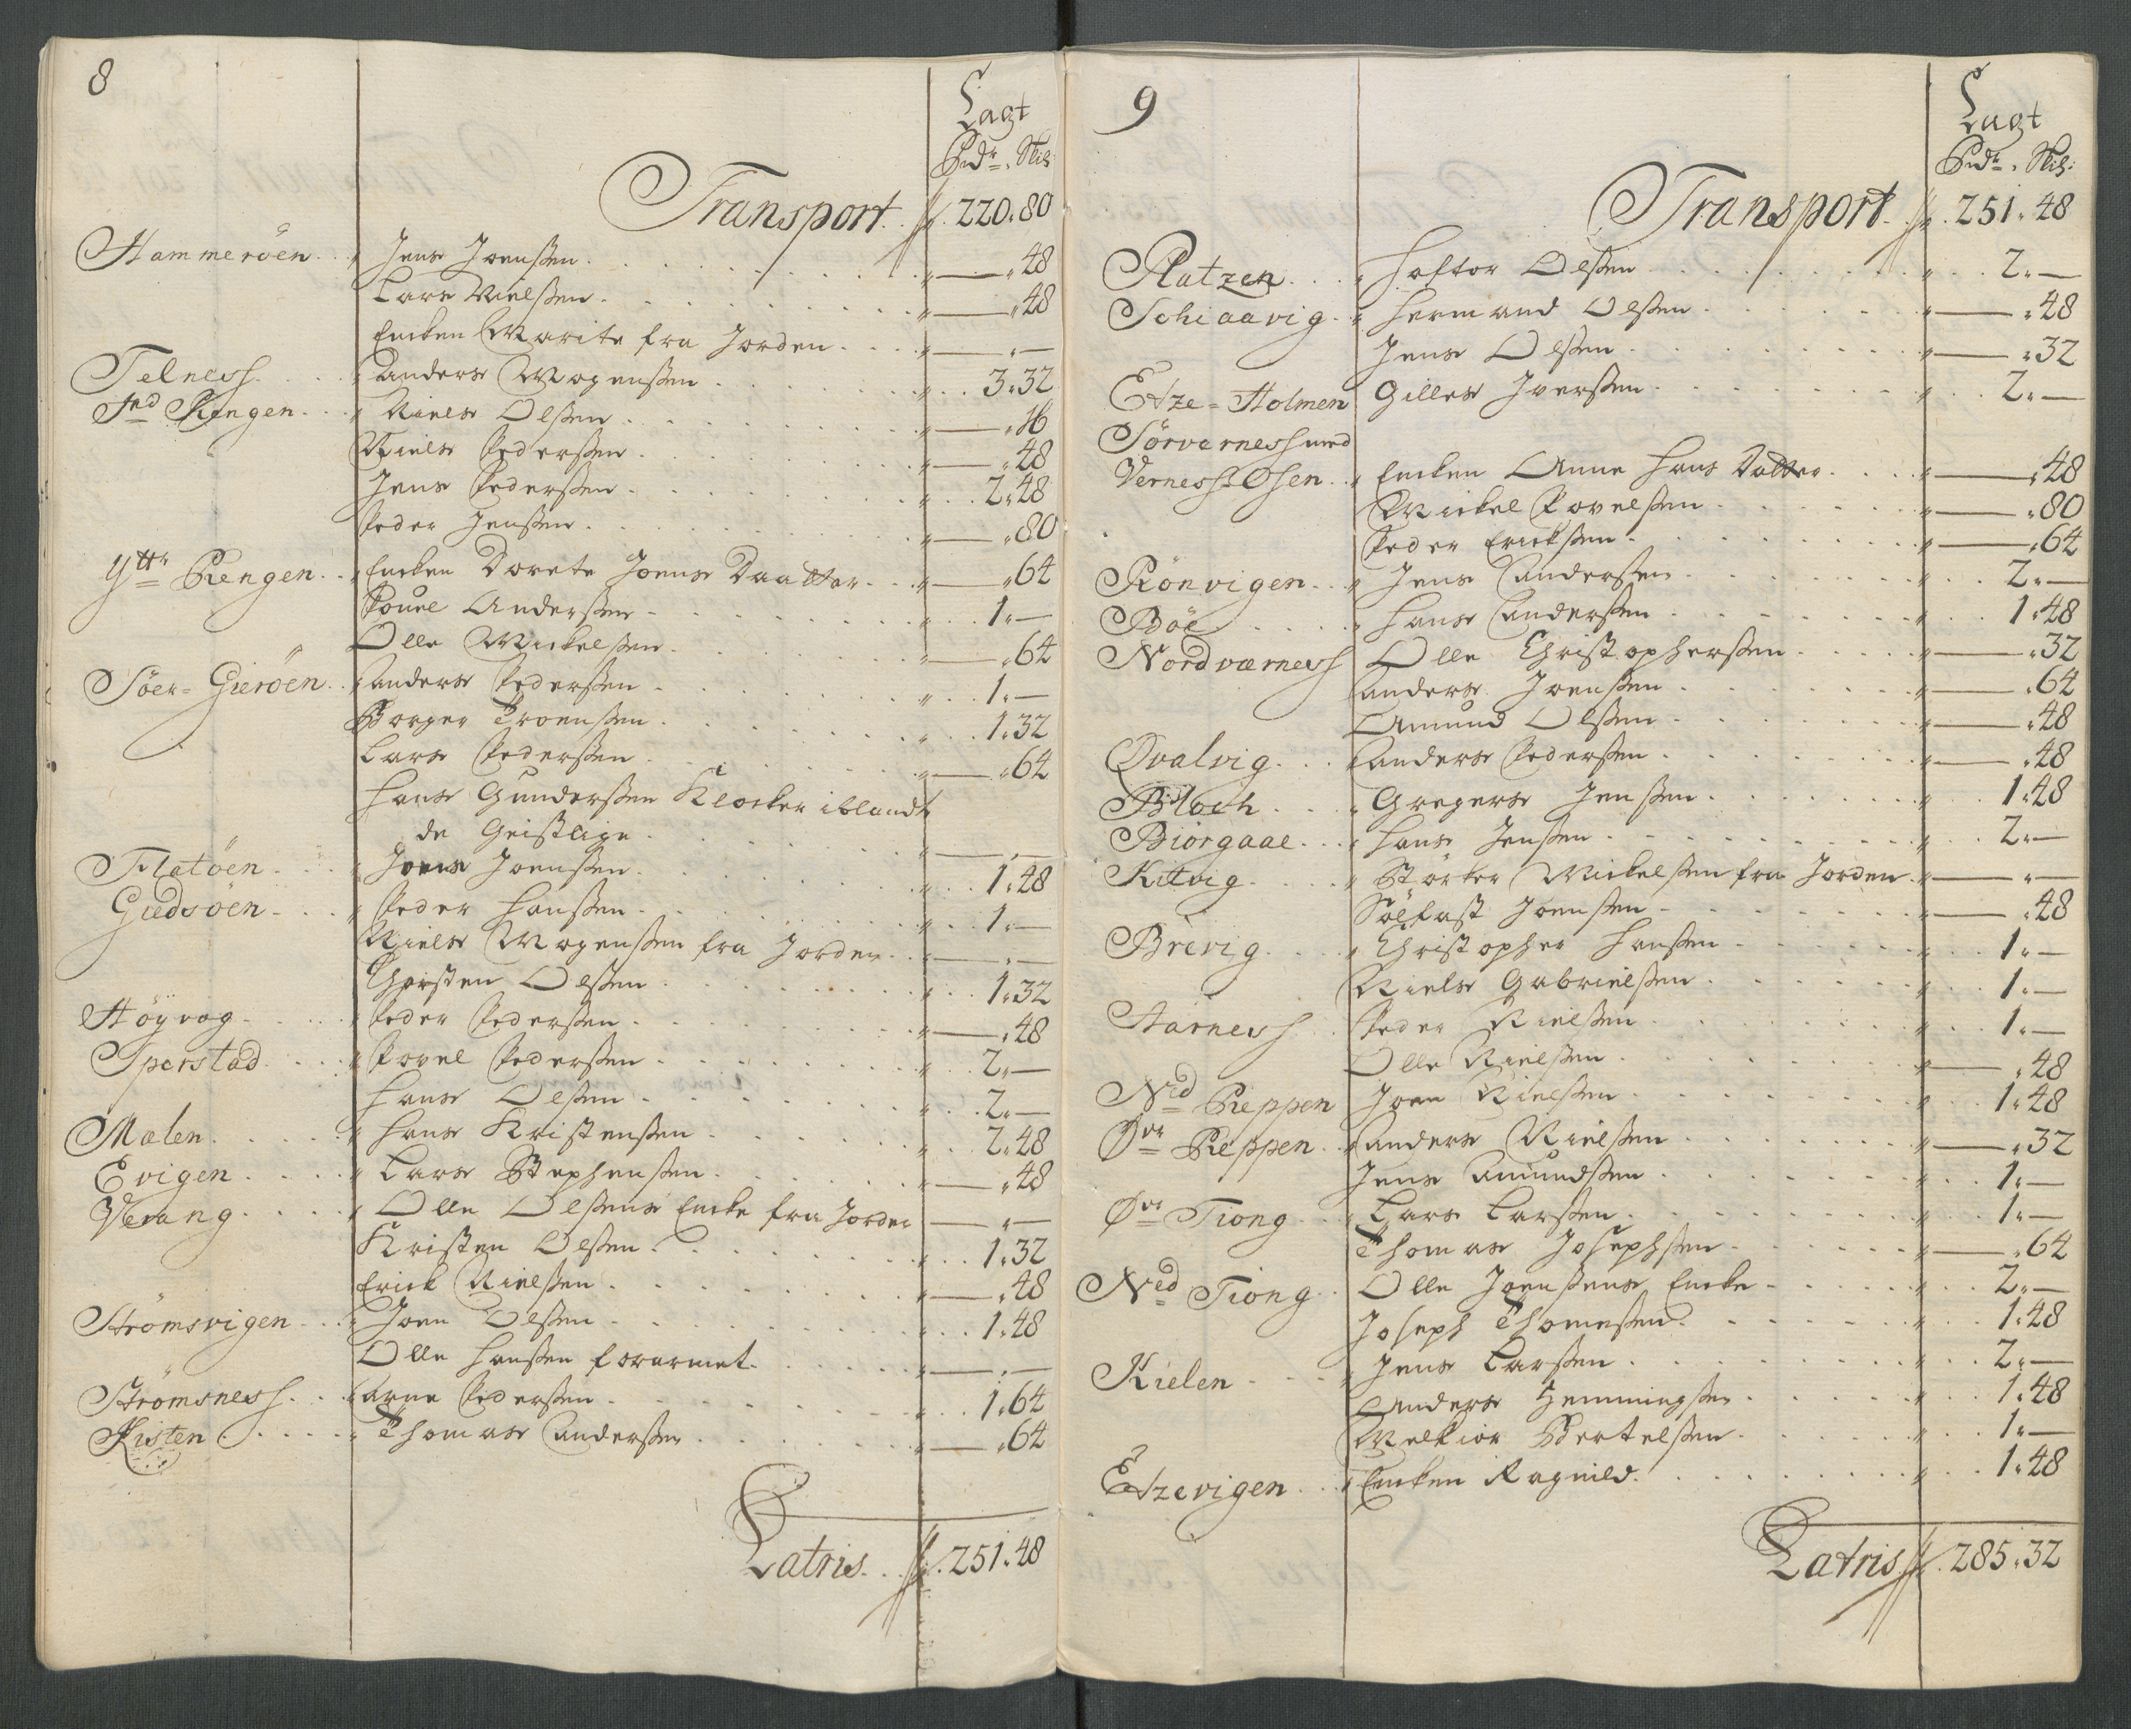 8
Lagt
Rdr. Skil:
Transport . . 220. 80
Hammeröen . . Jens Joenssen . . — . 48
Lars Nielssen . . — . 48
Encken Marite fra Jorden . . — . —
Telness . . Anders Mogenssen . . 3. 32
Ind Rengen . . Niels Olssen . . — . 16
Niels Pederssen . . — . 48
Jens Pederssen . . 2. 48
Peder Jenssen . . — . 80
Yttr Rengen . . Encken Dorete Joens Daatter . . — . 64
Pouel Anderssen . . 1. —
Olle Mickelssen . . — . 64
Söer-Gieröen . . Anders Pederssen . . 1. —
Borger Troenssen . . 1. 32
Lars Pederssen . . — . 64
Hans Gunderssen Klocker iblandt
de Geistlige . . — . —
Flatöen . . Joens Joenssen . . 1. 48
Giedsöen . . Peder Hanssen . . 1. —
Niels Mogenssen fra Jorden . . — . —
Christen Olssen . . 1. 32
Höyvag . . Peder Pederssen . . — . 48
Sperstad . . Povel Pederssen . . 2. —
Hans Olssen . . 2. —
Malen . . Hans Kristenssen . . 2. 48
Evigen . . Lars Stephenssen . . — . 48
Verang . . Olle Olssens Encke fra Jorden — . —
Kristen Olssen . . 1. 32
Erick Nielssen . . — . 48
Strömsvigen . . Joen Olssen . . 1. 48
Olle Hanssen forarmet . . — . —
Strömsness . . Arne Pederssen . . 1. 64
Risten . . Thomas Anderssen . . — . 64
Latris . . 251. 48
9
Lagt
Rdr. Skil:
Transport . . 251. 48
Platzen . . Hoftor Olssen . . 2. —
Schiaavig . . Hermand Olssen . . — . 48
Jens Olssen . . — . 32
Etze-Holmen Gilles Iverssen . . 2. —
Sörverness med
Verness Osen . . Encken Anne Hans Datter . . — . 48
Mickel Povelssen . . — . 80
Peder Erickssen . . — . 64
Rönvigen . . Jens Anderssen . . 2. —
Böe . . Hans Anderssen . . 1. 48
Nordværness Olle Christopherssen . . — . 32
Anders Joenssen . . — . 64
Amund Olssen . . — . 48
Qvalvig . . Anders Pederssen . . — . 48
Bloch . . Gregers Jenssen . . 1. 48
Biorgaae . . Hans Jenssen . . 2. —
Kitvig . . Störker Mickelssen fra Jorden . — . —
Sölfast Joenssen . . — . 48
Brevig . . Christopher Hanssen . . 1. —
Niels Gabrielssen . . 1. —
Aarness . . Peder Nielssen . . 1. —
Olle Nielssen . . — . 48
Ned Reppen Joen Nielssen . . 1. 48
Øvr Reppen . . Anders Nielssen . . — . 32
Jens Amundssen . . 1. —
Øvr Tiong . . Lars Larssen . . 1. —
Thomas Josephssen . . — . 64
Ned Tiong . . Olle Joenssens Encke . . 2. —
Joseph Thomessen . . 1. 48
Kielen . . Jens Larssen . . 2. —
Anders Hemmingssen . . 1. 48
Melkior Bertelssen . . 1. —
Etzevigen . . Encken Ragnild . . 1. 48
Latris . 285. 32